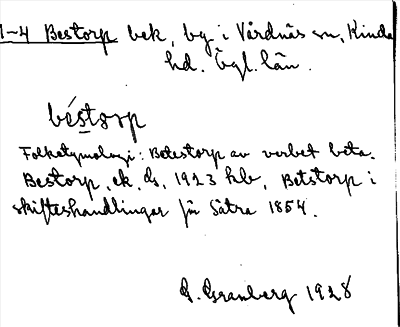 1-4 Bestorp bek, bg i Vårdnäs sn, Kinda
hd. Ögl. län.
béstorp
Folketymologi: Betestorp av verbet beta.
Bestorp, ek. ds, 1923 kb, Betstorp i
skifteshandlingar för Sätra 1854.
G. Granberg 1928